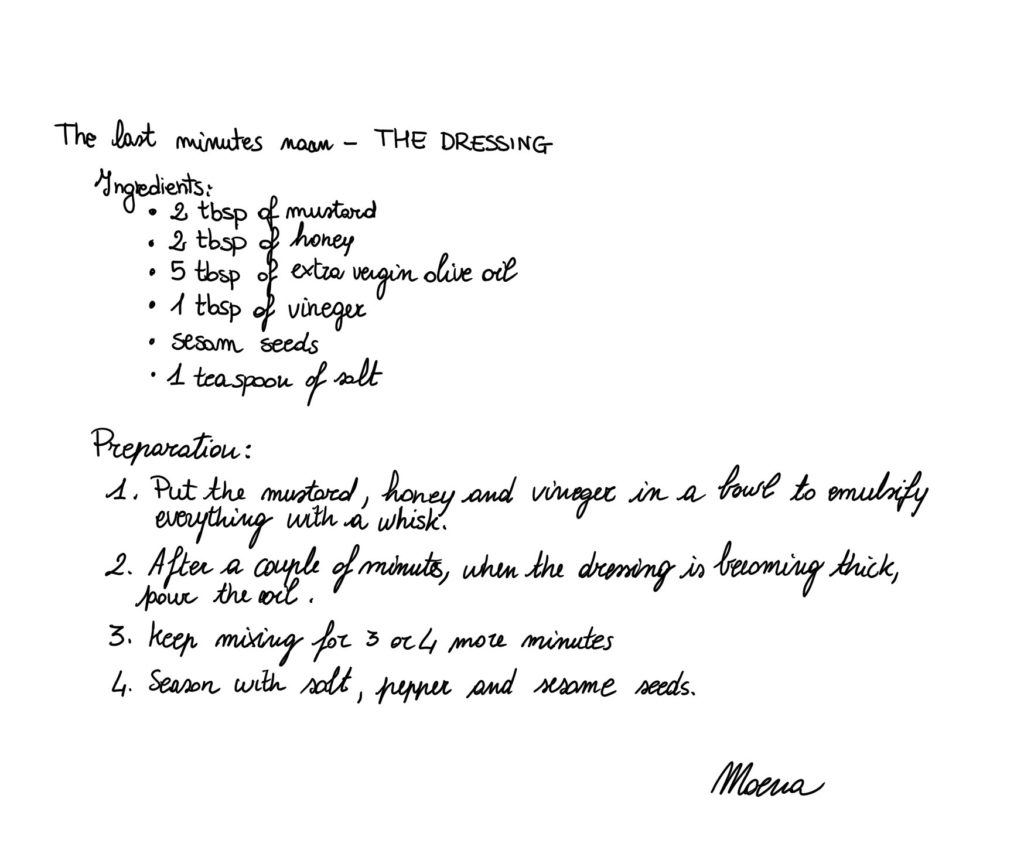 The last minutes naan - THE DRESSING
Ingredients:
• 2 tbsp of mustard
• 2 tbsp of honey
• 5 tbsp of extra vergin olive oil
• 1 tbsp of vineger
• sesam seeds
• 1 teaspoon of salt
Preparation:
1. Put the mustard, honey and vineger in a bowl to emulsify
everything with a whisk.
2. After a couple of minutes, when the dressing is becoming thick,
pour the oil.
3. Keep mixing for 3 or 4 more minutes
4. Season with salt, pepper and sesame seeds.
Moena